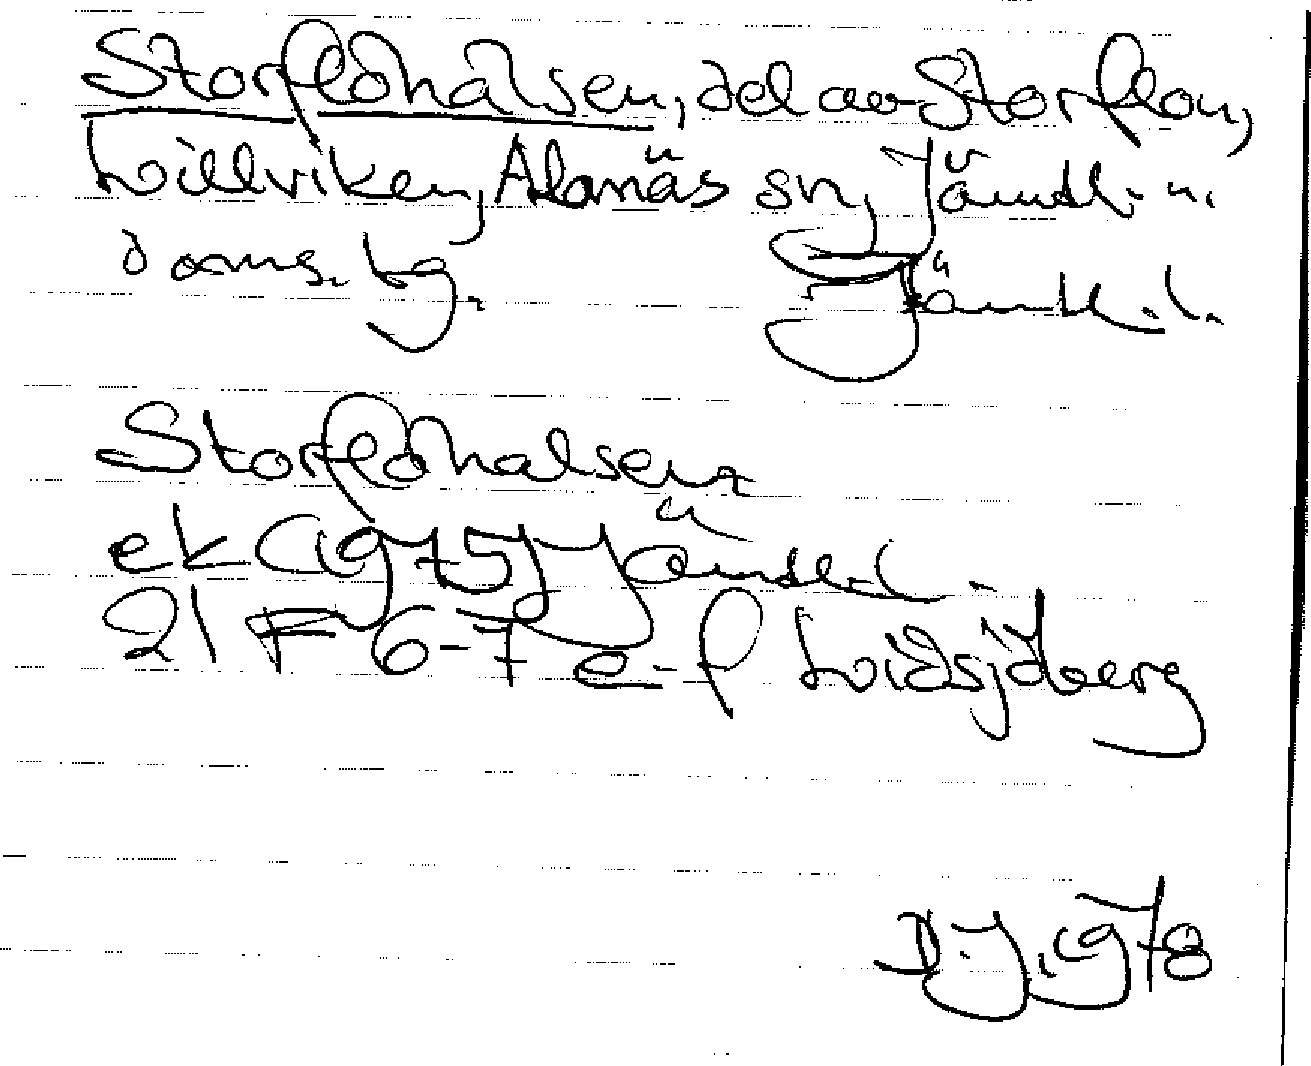 Storflohalsen, del av Storflon,
Lillviken, Alanäs sn, Jämtl. n.
doms. tg. Jämtl. l.
Storflohalsen
ek (1975) Jämtl. l.
21 F 6-7 e-f Lidsjöberg
D.J. 1978